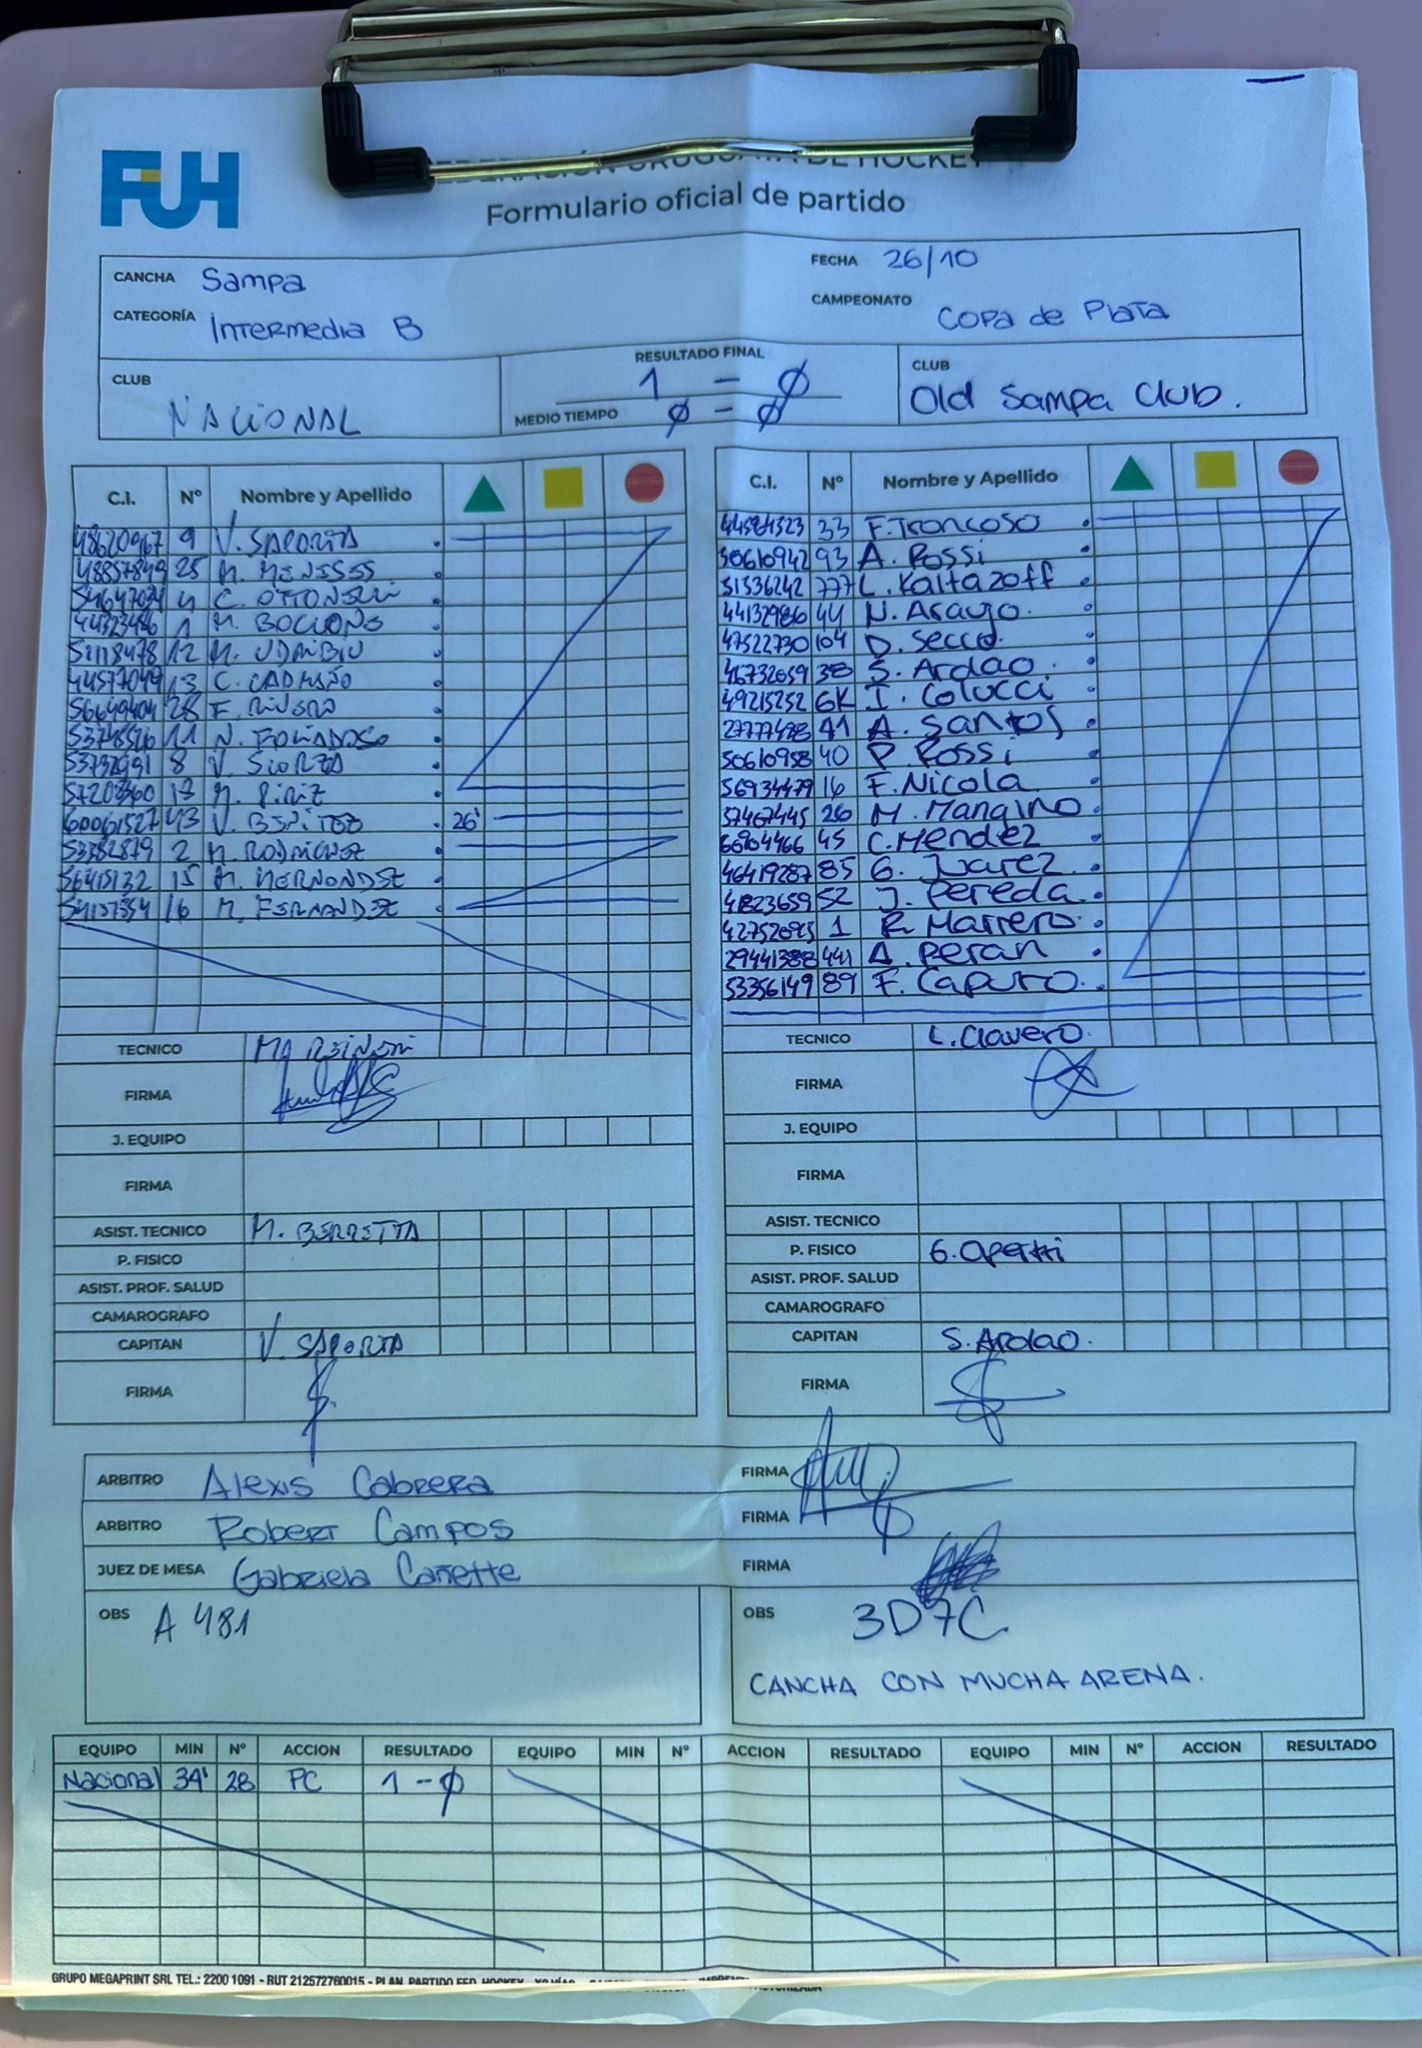 FUH
FEDERACIÓN URUGUAYA DE HOCKEY
Formulario oficial de partido
CANCHA Sampa FECHA 26/10
CATEGORÍA Intermedia B CAMPEONATO Copa de Plata
CLUB NACIONAL RESULTADO FINAL 1 - Ø CLUB Old Sampa Club.
MEDIO TIEMPO Ø - Ø
C.I. Nº Nombre y Apellido C.I. Nº Nombre y Apellido
48620967 9 V. SAPORTA 33 F. Troncoso
48857849 25 M. MENESES 50610942 93 A. Rossi
4 C. 51336242 777 L. Kaltazoff
1 M. 44132986 44 N. Araujo.
12 M. 47522730 104 D. Secco.
44577049 13 C. 46732659 38 S. Ardao.
56649404 28 F. RIVERO 49215252 6K I. Colucci
11 N. 27777498 41 A. Santos
8 V. 50610958 40 P. Rossi
M. PIRIZ 56934479 16 F. Nicola
60061527 43 V. BENITEZ 26' 57467445 26 M. Mangino
53382879 2 M. RODRIGUEZ 45 C. Mendez
56415132 15 M. HERNANDEZ 46419287 85 G. Juarez
16 M. FERNANDEZ 41823659 52 J. Pereda.
1 R. Marrero.
29441388 441 A. Peran
53356149 89 F. Capurro.
TECNICO TECNICO L. Clavero.
FIRMA FIRMA
J. EQUIPO J. EQUIPO
FIRMA FIRMA
ASIST. TECNICO M. BERRETTA ASIST. TECNICO
P. FISICO P. FISICO G. Opertti
ASIST. PROF. SALUD ASIST. PROF. SALUD
CAMAROGRAFO CAMAROGRAFO
CAPITAN V. SAPORTA CAPITAN S. Ardao.
FIRMA FIRMA
ARBITRO Alexis Cabrera FIRMA
ARBITRO Robert Campos FIRMA
JUEZ DE MESA Gabriela Cañette FIRMA
OBS A 481 OBS 3D7C
CANCHA CON MUCHA ARENA.
EQUIPO MIN Nº ACCION RESULTADO EQUIPO MIN Nº ACCION RESULTADO EQUIPO MIN Nº ACCION RESULTADO
Nacional 34' 28 PC 1 - Ø
GRUPO MEGAPRINT SRL TEL.: 2200 1091 - RUT 212572760015 - PLAN. PARTIDO FED. HOCKEY